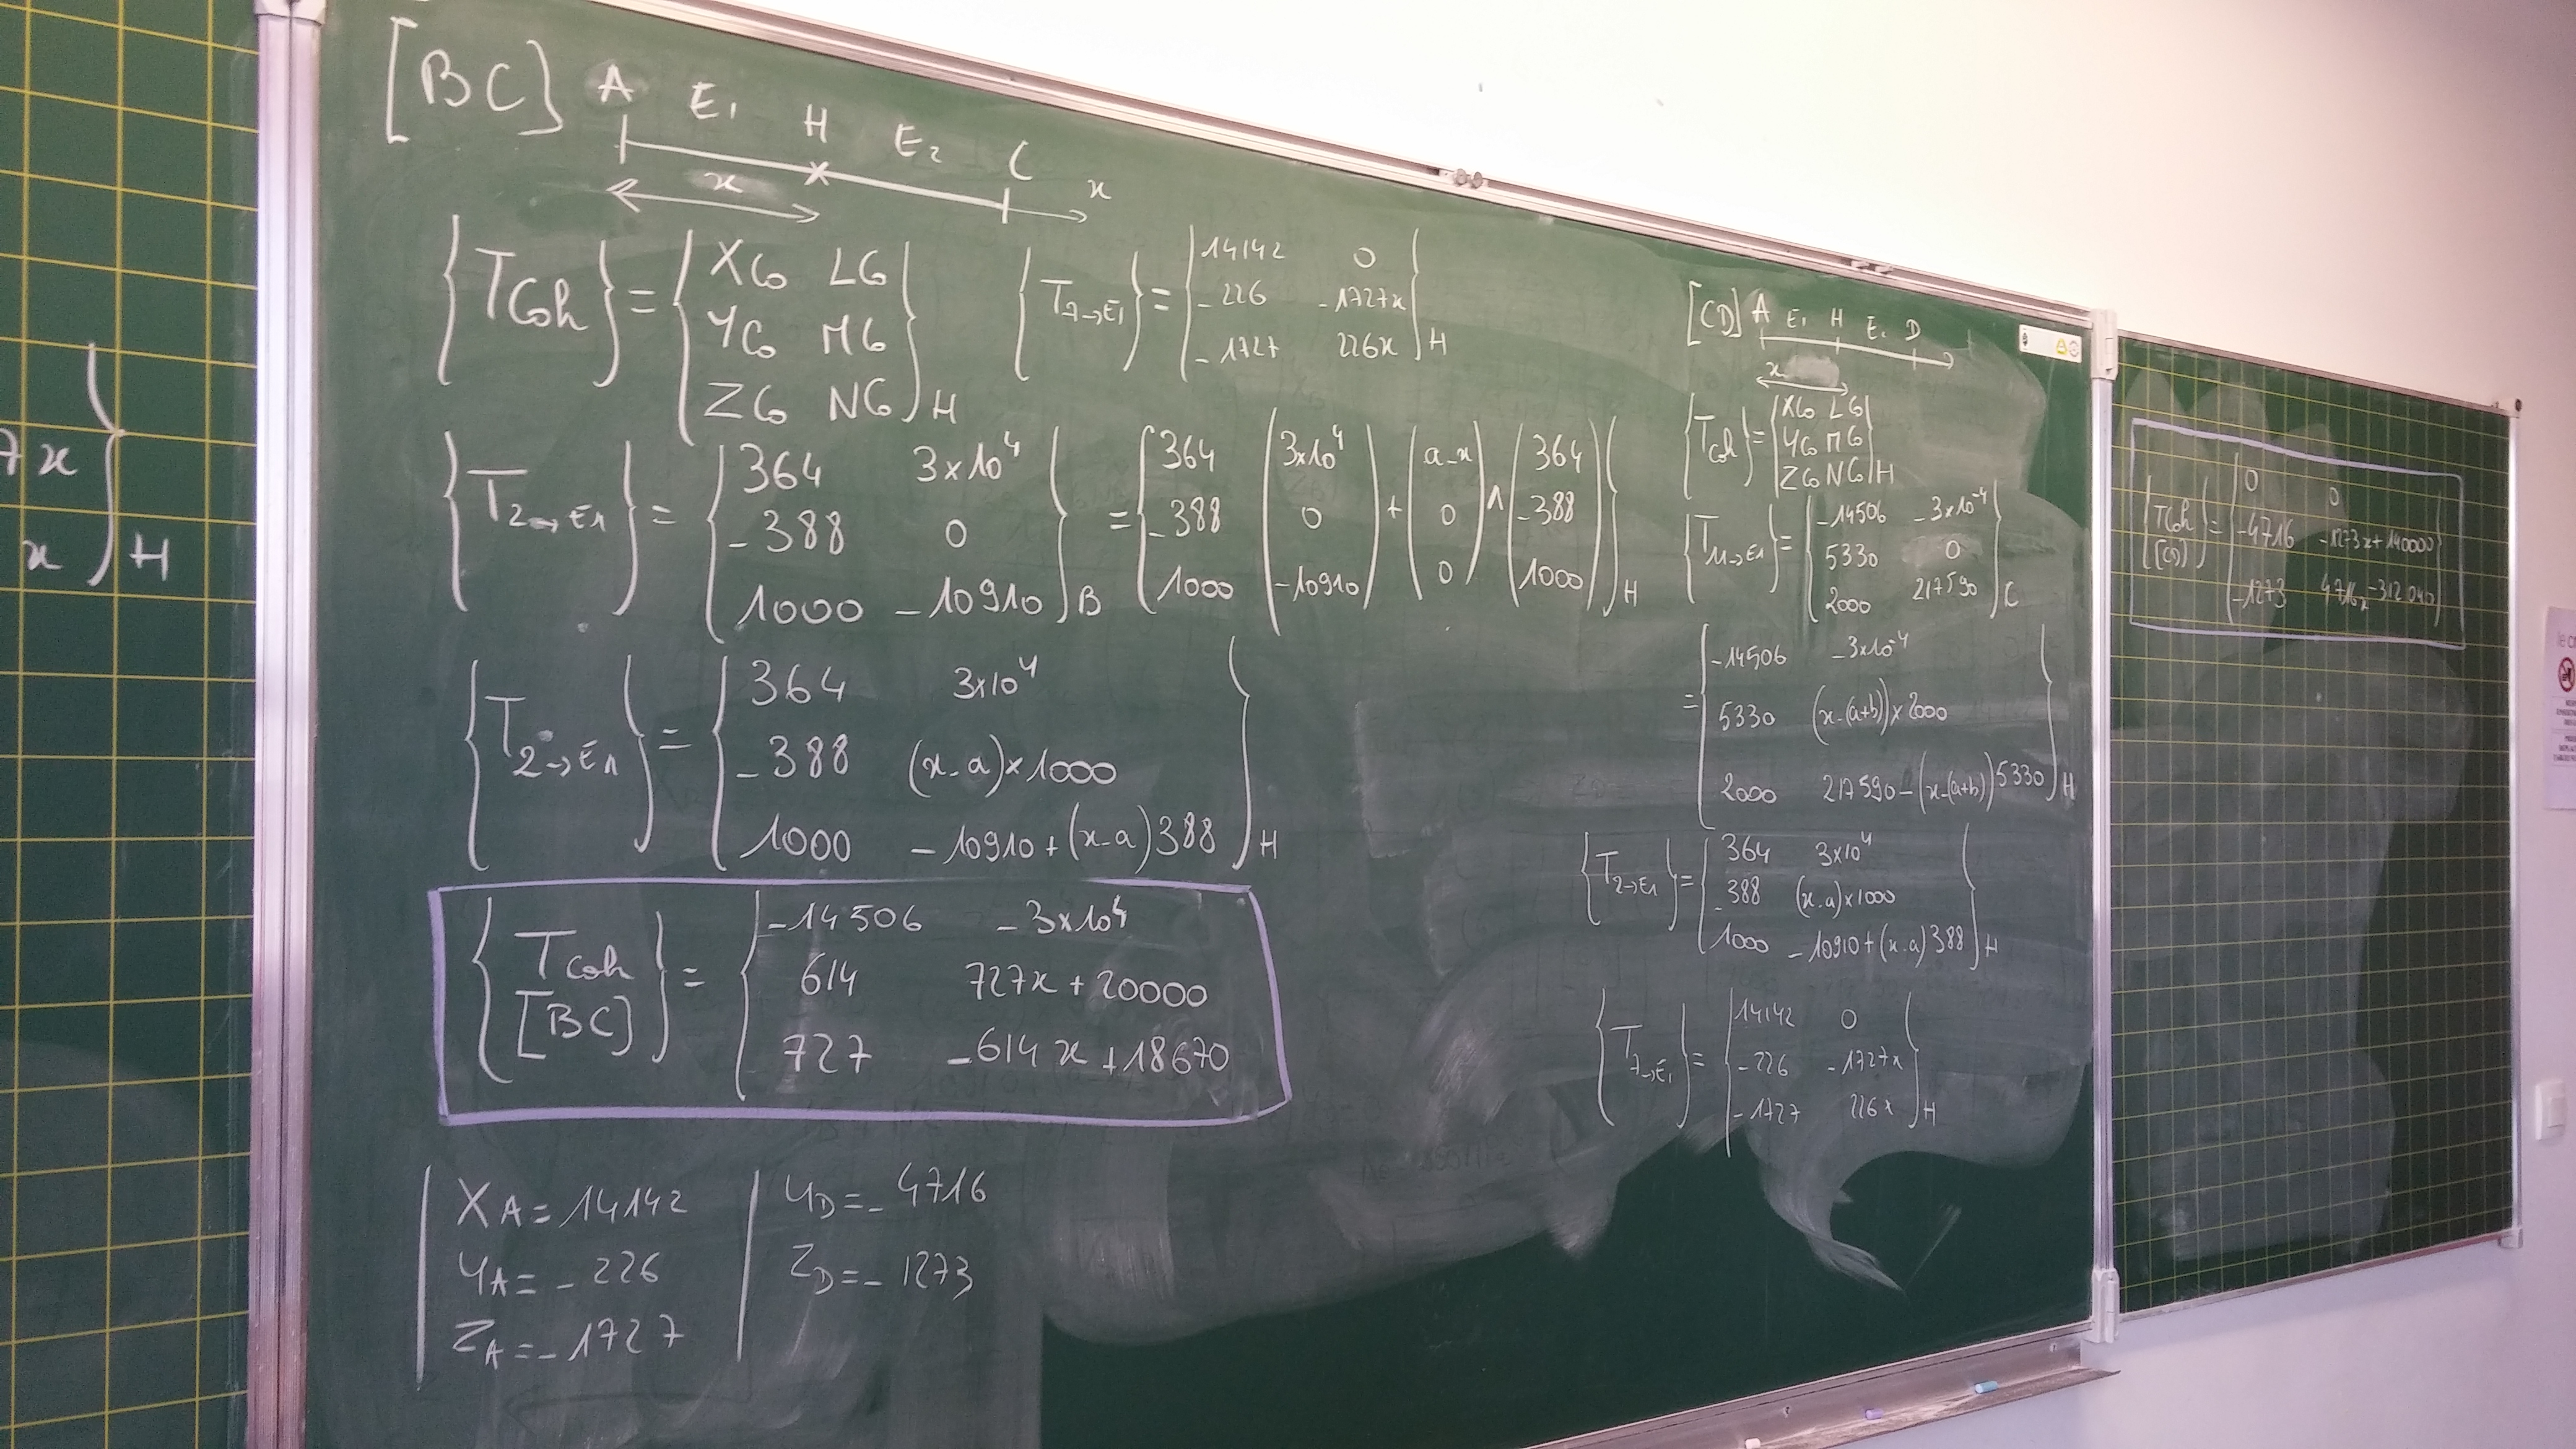 7x
x H
[BC] A E1 H E2 C
x x
{TCoh} = {XCo LCo
YCo MCo
ZCo NCo}H
{T7→E1} = {14142 0
-226 -1727x
-1727 226x}H
{T2→E1} = {364 3×10^4
-388 0
1000 -10910}B
= {364 (3×10^4 + (a-x ∧ (364
-388 0 0 -388
1000 -10910) 0) 1000)}H
{T2→E1} = {364 3×10^4
-388 (x-a)×1000
1000 -10910+(x-a)388}H
{TCoh [BC]} = {-14506 -3×10^4
614 727x+20000
727 -614x+18670
XA = 14142
YA = -226
ZA = -1727
YD = -4716
ZD = -1273
[CD] A E1 H E2 D
x
{TCoh} = {XCo LCo
YCo MCo
ZCo NCo}H
{T11→E1} = {-14506 -3×10^-4
5330 0
2000 217590}C
= {-14506 -3×10^-4
5330 (x-(a+b))×2000
2000 217590-(x-(a+b))5330}H
{T2→E1} = {364 3×10^4
-388 (x-a)×1000
1000 -10910+(x-a)388}H
{T7→E1} = {14142 0
-226 -1727x
-1727 226x}H
{TCoh [CD]} = {0 0
-4716 -1273x+140000
-1273 4716x-312040}